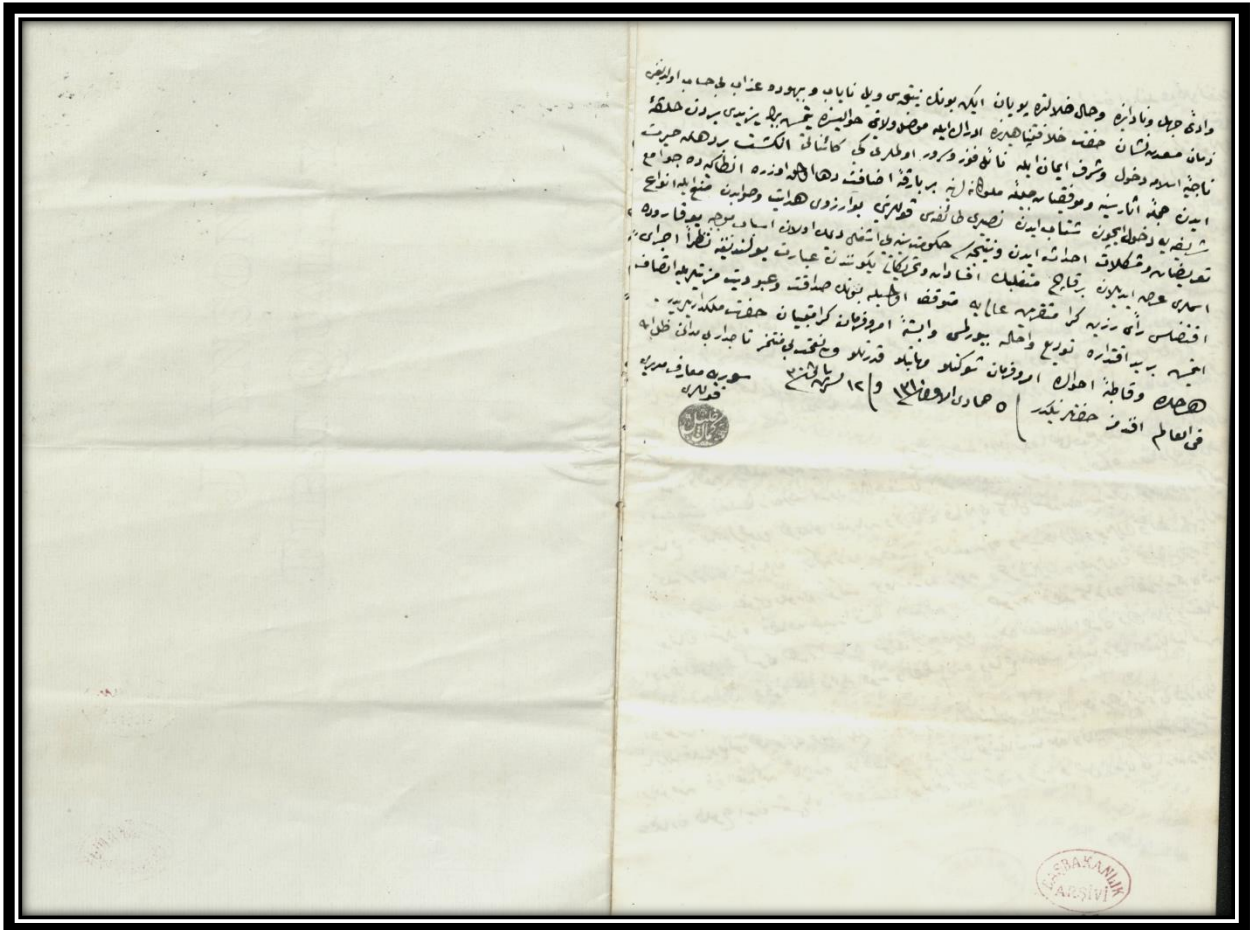 وادئ جهل ونادانیده وحال ضلالتده پویان ایکن بونك نتیجه‌سی ویل نایاب و بیهوده عذاب بی حساب اولدیغنی
زمان سعد نشان حضرت خلافتپناهیلرنده ادراك ایله موصل ولایتی حوالیسنده یتمش بیك یزیدی بردن حلقۀ
ناجیۀ اسلامه دخول وشرف ایمان ایله نائل فوز وسرور اولملری کبی کائناتی انکشت بر دهان حیرت
ایدن جملۀ آثار وموفقیات جلیلۀ ملوکانه‌لرینه بر یارقه اضافت دها اولمق اوزره انطاکیه‌ده جوامع
شریفه‌یه دخول ایچون شتاب ایدن نصیری طائفه‌سی قوللرینی بو آرزوی هدایت وصوابدن منع ایله انواع
تعرضات ومشکلات احداث ایدن ونتیجه‌سی حکومت سنیه‌یی اشغال دیمك اولان اسباب موجبه یوقاروده
اسملری عرض ایدیلان بر قاچ متغلبك افسادات وتحریکاتی یکونندن عبارت بولندیغنه نظراً اجرای
اقتضاسی رأی رزین کرامتقرین عالی‌یه متوقف اولمغله بونك صداقت وعبودیت مزیتلریله اتصاف
ایتمش بر ید اقتداره تودیع واحاله بیورلمسی وابستۀ امر وفرمان کرامتبیان حضرت ملکداریلریدر
هر حالده وقاطبۀ احوالده امر وفرمان شوکتلو مهابتلو قدرتلو ولی نعمت بی منتمز تاجدار بی مدانی ظل الله
فی العالم افندمز حضرتلرینکدر ٥ جمادی الاولی ٣١٠ و ١٢ تشرین ثانی ٣٠٨ سوریه معارف مدیری
قوللری
BAŞBAKANLIK
ARŞİVİ